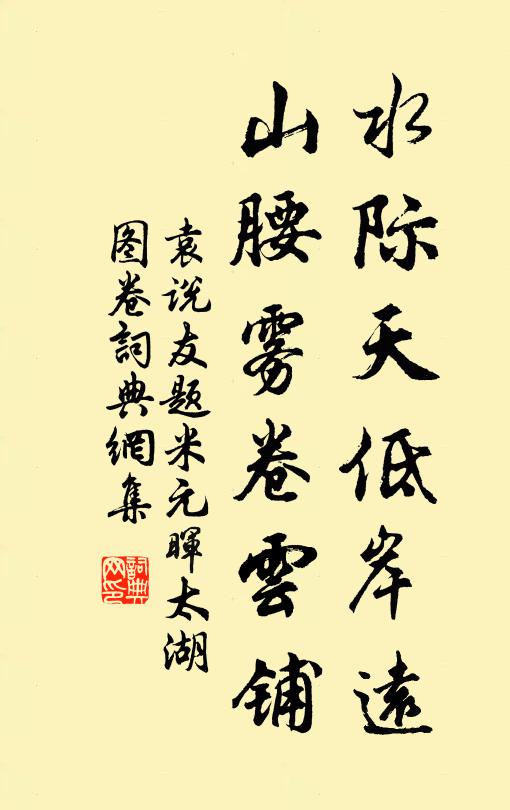 水际天低岸遠
山腰雾卷雲铺
袁说友题米元暉太湖
图卷詞典網集
詞典网印